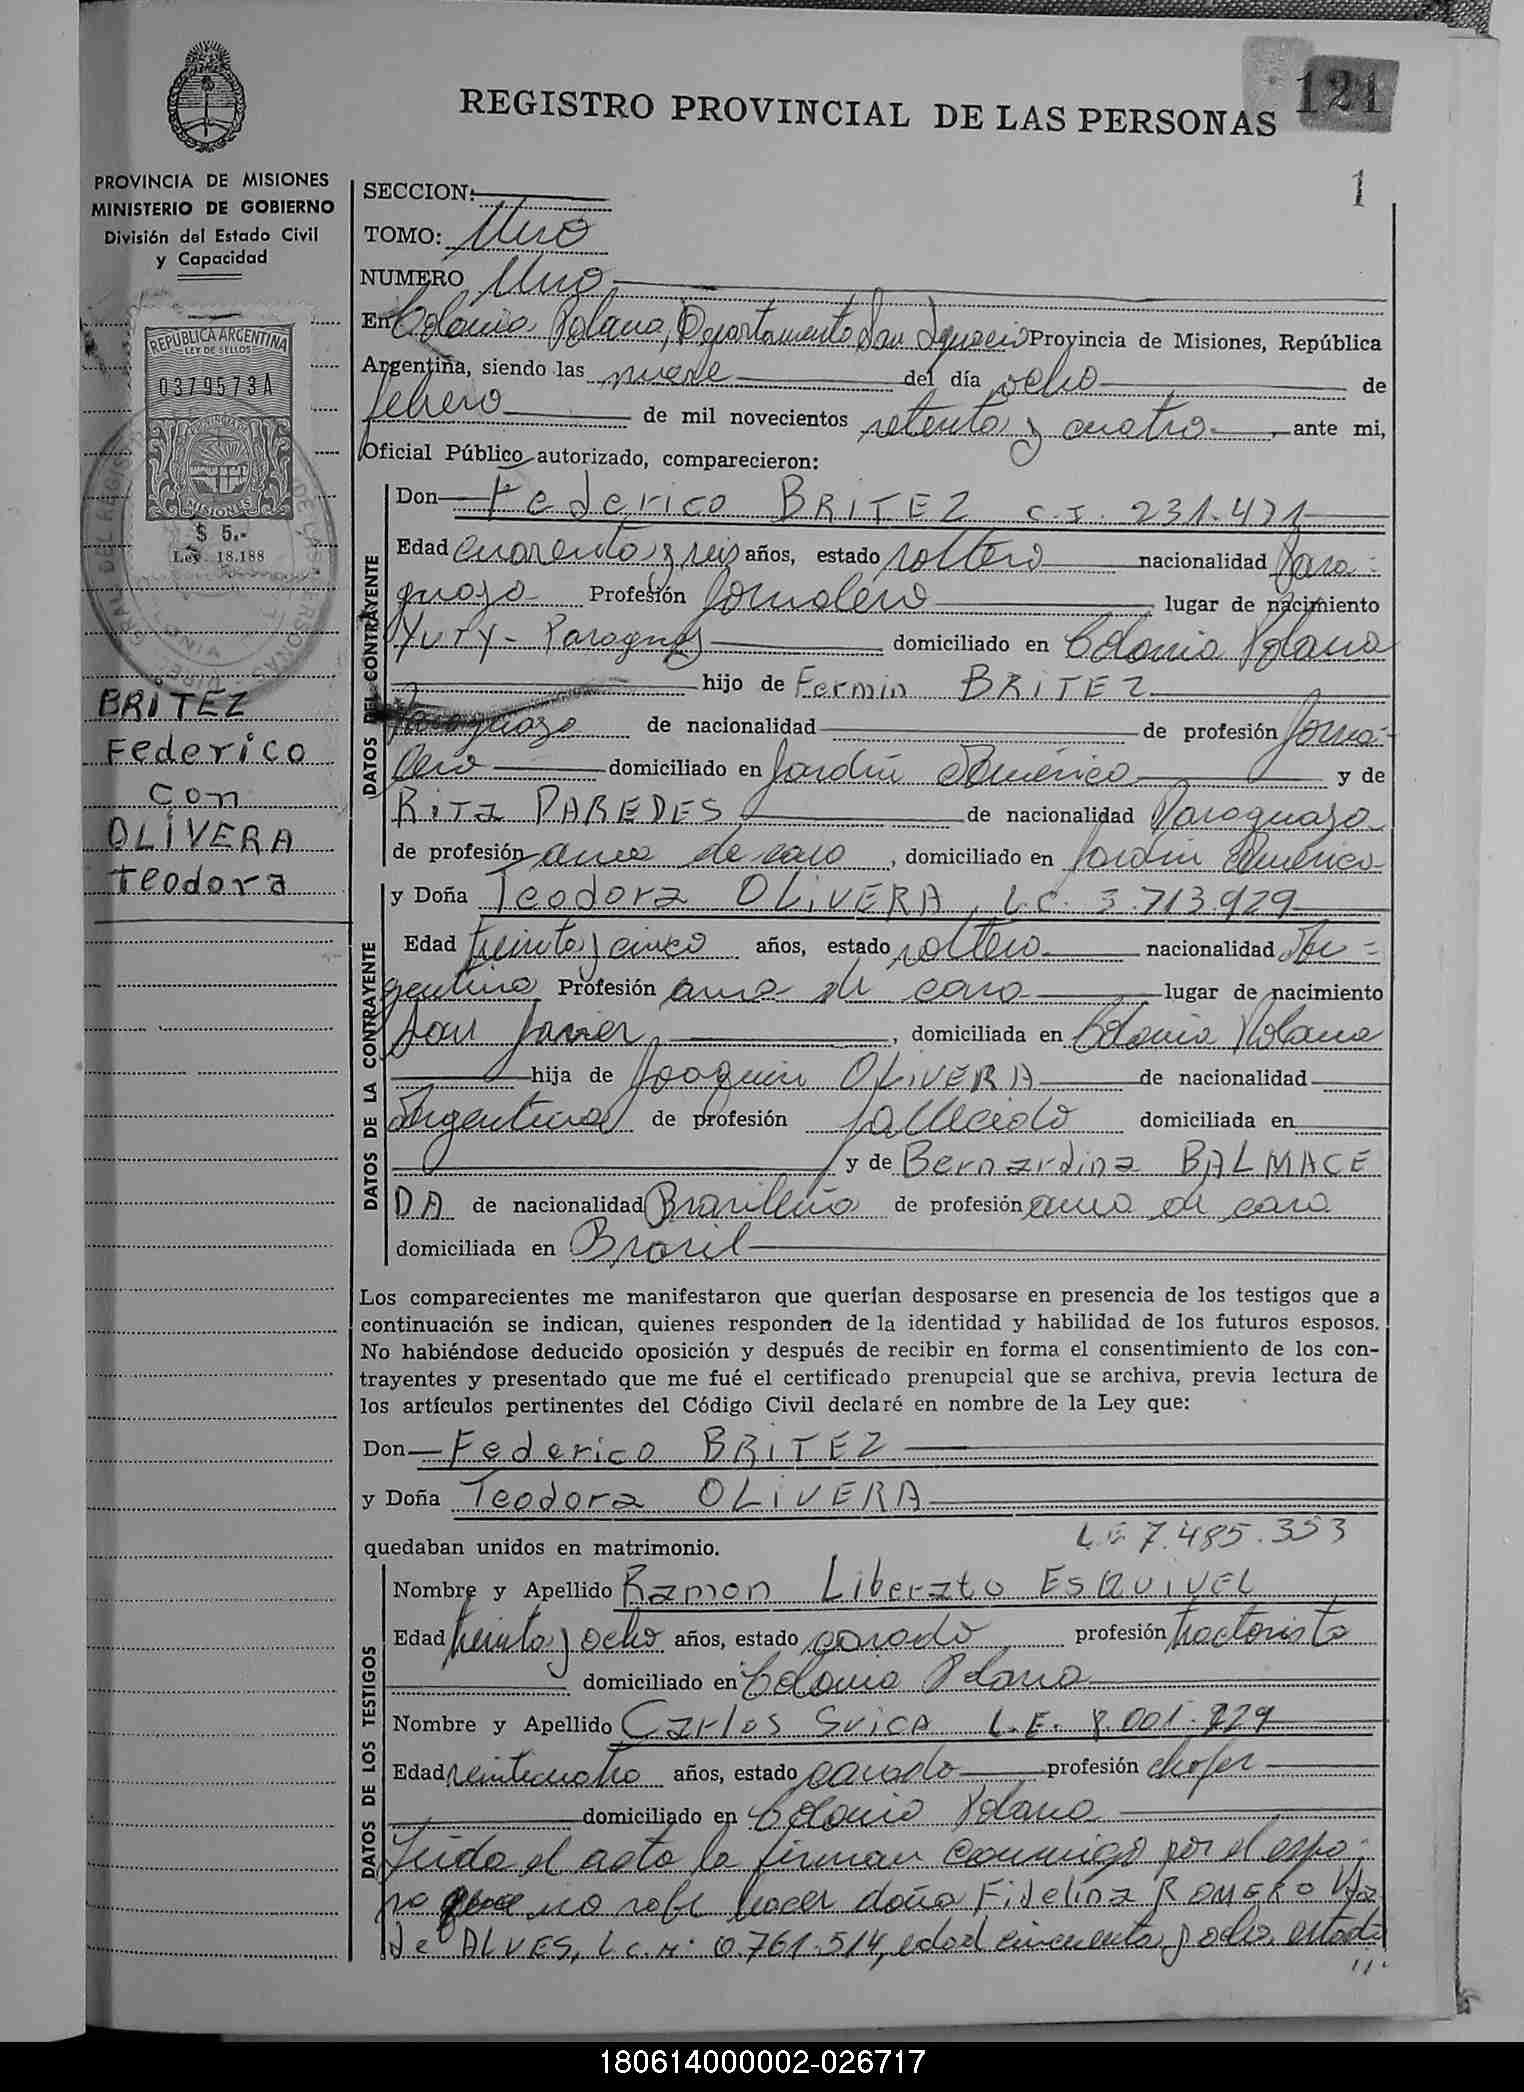 REGISTRO PROVINCIAL DE LAS PERSONAS
121
1
PROVINCIA DE MISIONES
MINISTERIO DE GOBIERNO
División del Estado Civil
y Capacidad
REPUBLICA ARGENTINA
LEY DE SELLOS
0379573A
MISIONES
$ 5.-
Ley. 18.188
BRITEZ
Federico
con
OLIVERA
Teodora
SECCION:
TOMO: Uno
NUMERO Uno
En Colonia Polana, Departamento San Ignacio Provincia de Misiones, República
Argentina, siendo las nueve del día ocho de
febrero de mil novecientos setenta y cuatro, ante mi,
Oficial Público autorizado, comparecieron:
DATOS DEL CONTRAYENTE
Don Federico BRITEZ C.I. 231.471
Edad cuarenta y seis años, estado soltero nacionalidad Para=
guayo Profesión Jornalero lugar de nacimiento
Yuty - Paraguay domiciliado en Colonia Polana
hijo de Fermin BRITEZ
Paraguayo de nacionalidad de profesión Jorna-
lero domiciliado en Jardín América y de
Rita PAREDES de nacionalidad Paraguaya
de profesión ama de casa, domiciliado en Jardín América
DATOS DE LA CONTRAYENTE
y Doña Teodora OLIVERA, L.C. 3.713.929
Edad treinta y cinco años, estado soltera nacionalidad Ar=
gentina Profesión ama de casa lugar de nacimiento
San Javier, domiciliada en Colonia Polana
hija de Joaquin OLIVERA de nacionalidad
Argentina de profesión fallecido domiciliada en
y de Bernardina BALMACE
DA de nacionalidad Brasileña de profesión ama de casa
domiciliada en Brasil
Los comparecientes me manifestaron que querían desposarse en presencia de los testigos que a
continuación se indican, quienes responden de la identidad y habilidad de los futuros esposos.
No habiéndose deducido oposición y después de recibir en forma el consentimiento de los con-
trayentes y presentado que me fué el certificado prenupcial que se archiva, previa lectura de
los artículos pertinentes del Código Civil declaré en nombre de la Ley que:
Don Federico BRITEZ
y Doña Teodora OLIVERA
quedaban unidos en matrimonio.
L.E 7.485.353
DATOS DE LOS TESTIGOS
Nombre y Apellido Ramon Liberato ESQUIVEL
Edad treinta y ocho años, estado casado profesión tractorista
domiciliado en Colonia Polana
Nombre y Apellido Carlos SUICA L.E. 8.001.229
Edad veinticuatro años, estado casado profesión chofer
domiciliado en Colonia Polana
Leída el acta la firman conmigo por el espo-
so que no sabe hacer doña Fidelina ROMERO Vda
de ALVES, L.C.N: 0.761.514, edad cincuenta y ocho, estado
///.
180614000002-026717